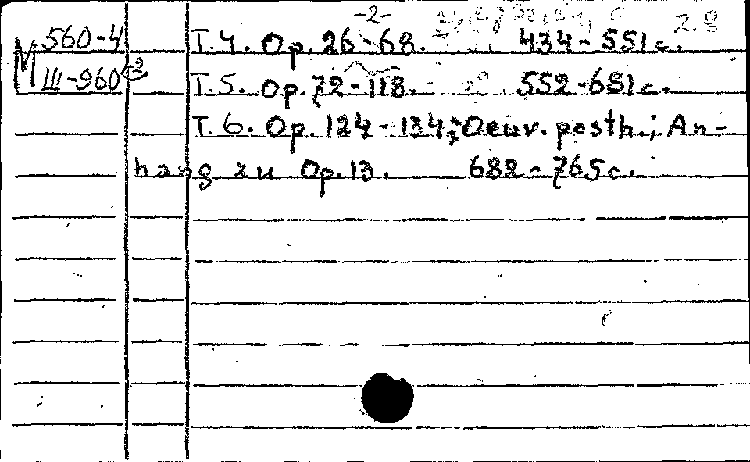 -2-
М 560-4 Т.4. Op. 26-68. 434-551 с.
III-960 Т.5. Op. 72-118. 552-681 с.
Т. 6. Op. 124-134; Oeuv. posth.; An-
hang zu Op. 13. 682-765 с.